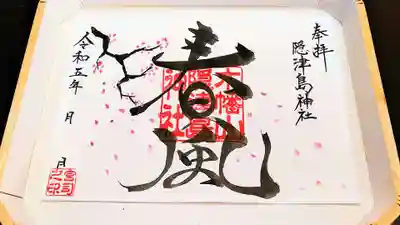 奉拝
隠津島神社
春風
木幡山
隠津島
神社
令和五年 月 日